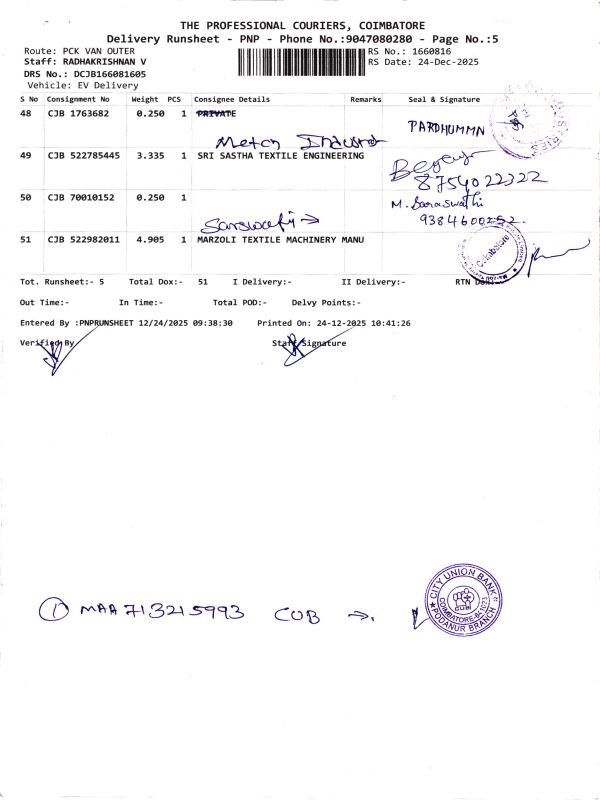 THE PROFESSIONAL COURIERS, COIMBATORE
Delivery Runsheet - PNP - Phone No.:9047080280 - Page No.:5
Route: PCK VAN OUTER
RS No.: 1660816
Staff: RADHAKRISHNAN V
RS Date: 24-Dec-2025
DRS No.: DCJB166081605
Vehicle: EV Delivery
S No Consignment No Weight PCS Consignee Details Remarks Seal & Signature
48 CJB 1763682 0.250 1 PRIVATE
PARDHUMMN
49 CJB 522785445 3.335 1 SRI SASTHA TEXTILE ENGINEERING
8754022322
50 CJB 70010152 0.250 1
M. Saraswathi
9384600252.
51 CJB 522982011 4.905 1 MARZOLI TEXTILE MACHINERY MANU
Coimbatore
Tot. Runsheet:- 5 Total Dox:- 51 I Delivery:- II Delivery:- RTN
Out Time:- In Time:- Total POD:- Delvy Points:-
Entered By :PNPRUNSHEET 12/24/2025 09:38:30 Printed On: 24-12-2025 10:41:26
Verified By Staff Signature
CITY UNION BANK
COIMBATORE-641023
CUB
PODANUR BRANCH
① MAA 713215993 CUB →